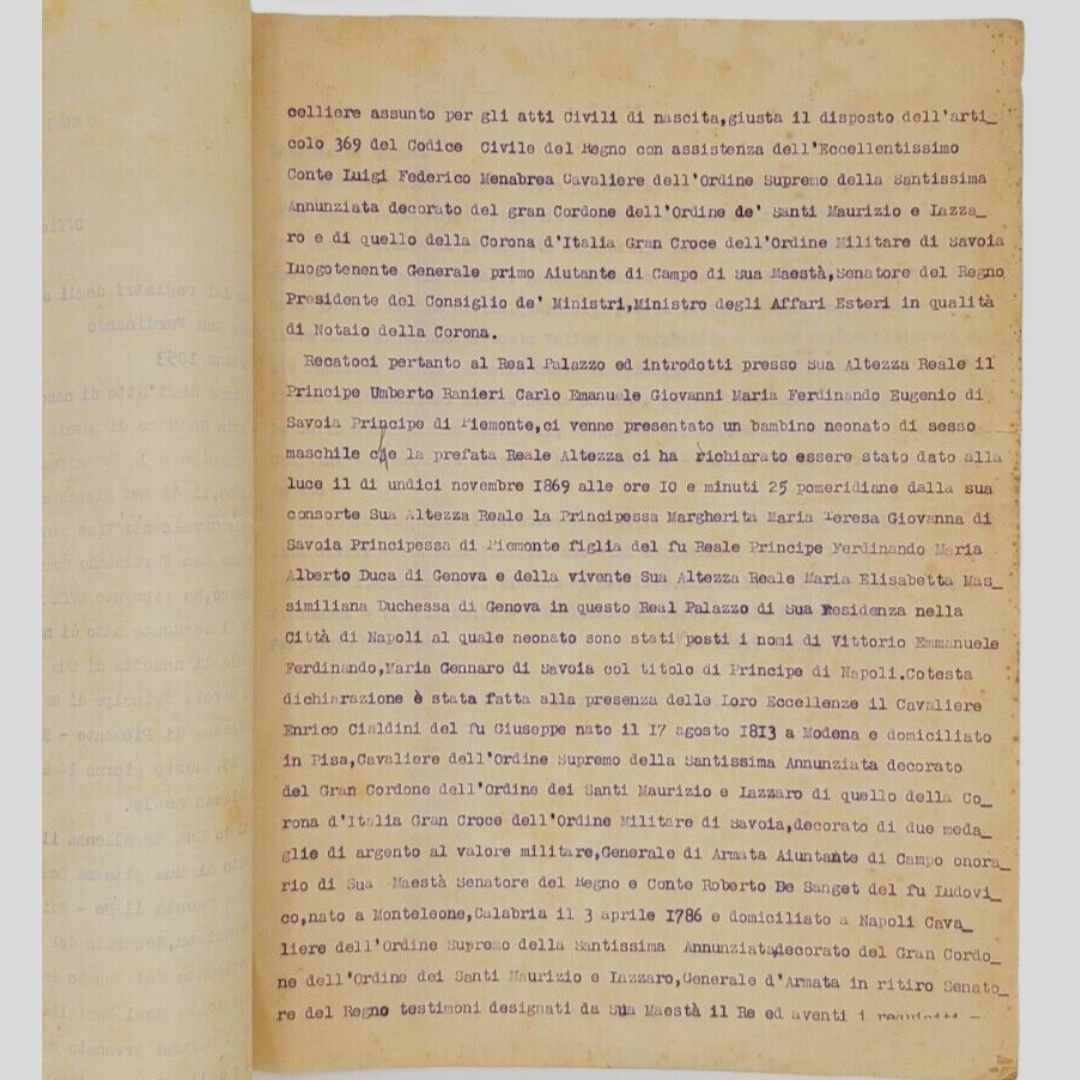 celliere assunto per gli atti Civili di nascita,giusta il disposto dell'arti_
colo 369 del Codice Civile del Regno con assistenza dell'Eccellentissimo
Conte Luigi Federico Menabrea Cavaliere dell'Ordine Supremo della Santissima
Annunziata decorato del gran Cordone dell'Ordine de' Santi Maurizio e Lazza_
ro e di quello della Corona d'Italia Gran Croce dell'Ordine Militare di Savoia
Luogotenente Generale primo Aiutante di Campo di Sua Maestà,Senatore del Regno
Presidente del Consiglio de' Ministri,Ministro degli Affari Esteri in qualità
di Notaio della Corona.
Recatoci pertanto al Real Palazzo ed introdotti presso Sua Altezza Reale il
Principe Umberto Ranieri Carlo Emanuele Giovanni Maria Ferdinando Eugenio di
Savoia Principe di Piemonte,ci venne presentato un bambino neonato di sesso
maschile che la prefata Reale Altezza ci ha richiarato essere stato dato alla
luce il di undici novembre 1869 alle ore 10 e minuti 25 pomeridiane dalla sua
consorte Sua Altezza Reale la Principessa Margherita Maria Teresa Giovanna di
Savoia Principessa di Piemonte figlia del fu Reale Principe Ferdinando Maria
Alberto Duca di Genova e della vivente Sua Altezza Reale Maria Elisabetta Mas_
similiana Duchessa di Genova in questo Real Palazzo di Sua Residenza nella
Città di Napoli al quale neonato sono stati posti i nomi di Vittorio Emmanuele
Ferdinando,Maria Gennaro di Savoia col titolo di Principe di Napoli.Cotesta
dichiarazione è stata fatta alla presenza delle Loro Eccellenze il Cavaliere
Enrico Cialdini del fu Giuseppe nato il 17 agosto 1813 a Modena e domiciliato
in Pisa,Cavaliere dell'Ordine Supremo della Santissima Annunziata decorato
del Gran Cordone dell'Ordine dei Santi Maurizio e Lazzaro di quello della Co_
rona d'Italia Gran Croce dell'Ordine Militare di Savoia,decorato di due meda_
glie di argento al valore militare,Generale di Armata Aiuntante di Campo onora_
rio di Sua Maestà Senatore del Regno e Conte Roberto De Sanget del fu Ludovi_
co,nato a Monteleone,Calabria il 3 aprile 1786 e domiciliato a Napoli Cava_
liere dell'Ordine Supremo della Santissima Annunziata,decorato del Gran Cordo_
ne dell'Ordine dei Santi Maurizio e Lazzaro,Generale d'Armata in ritiro Senato_
re del Regno testimoni designati da Sua Maestà il Re ed aventi i